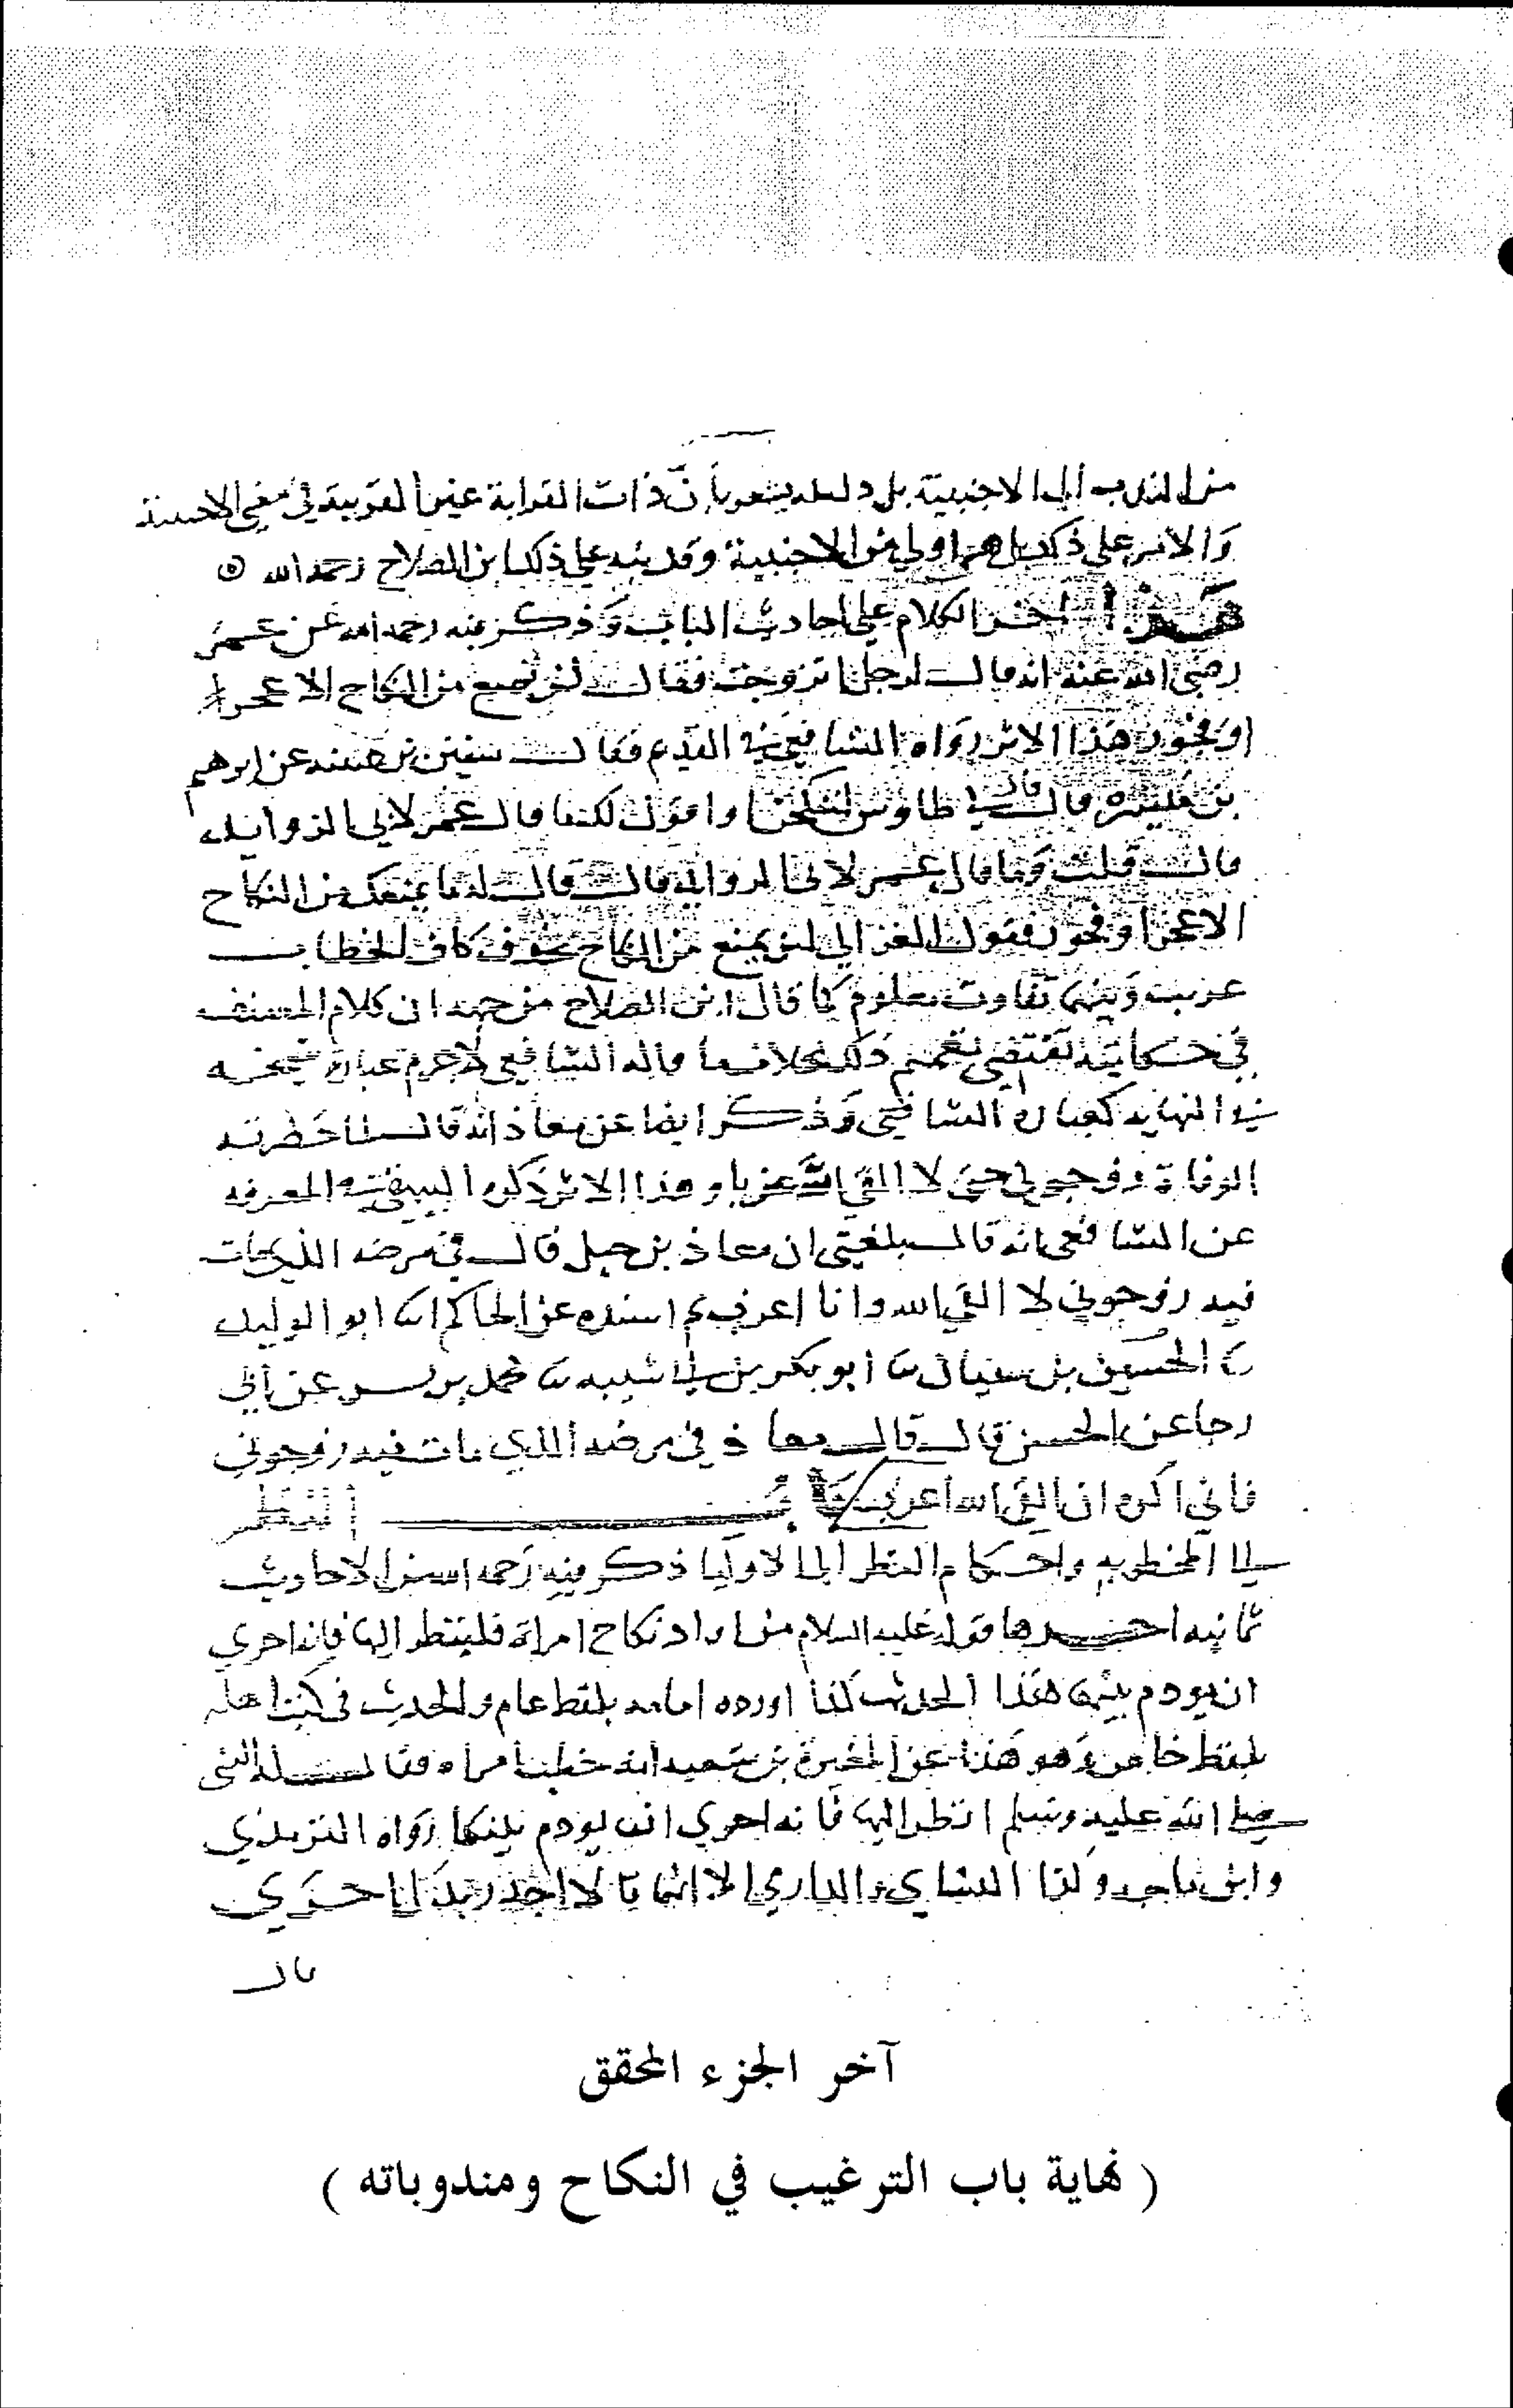 من الندب الى الاجنبية بل دليله يشعر بأن ذات القرابة غير القريبة في معنى الاجنبية
والامر على ذلك بل هي اولى من الاجنبية وقد نبه على ذلك ابن الصلاح رحمه الله
هذا اخر الكلام على احاديث الباب وذكر فيه رحمه الله عن عمر
رضي الله عنه انه قال لرجل اتزوجت فقال لن يمنع من النكاح الا عجز
او فجور هذا الاثر رواه الشافعي في القديم فقال سفين بن عيينه عن ابرهيم
بن ميسره قال قال لي طاوس لتنكحن او لاقولن لك ما قال عمر لابي الزوايد
قال قلت وما قال عمر لابي الزوايد قال قال له ما يمنعك من النكاح
الا عجز او فجور فقول الغزالي لن يمنع من النكاح بحرف كاف الخطاب
غريب وبينهما تفاوت معلوم كما قال ابن الصلاح من جهه ان كلام المصنف
في حكايته يقتضي تعميم ذلك بخلاف ما قاله الشافعي لا جرم عبارة شيخه
في النهايه كعبارة الشافعي وذكر ايضا عن معاذ انه قال لما حضرته
الوفاة زوجوني حتى لا القى الله عزبا وهذا الاثر ذكره البيهقي في المعرفه
عن الشافعي انه قال بلغني ان معاذ بن جبل قال في مرضه الذي مات
فيه زوجوني لا القى الله وانا اعزب ثم اسنده عن الحاكم انا ابو الوليد
ثنا الحسين بن سفيان ثنا ابو بكر بن ابي شيبه ثنا محمد بن بشر عن ابي
رجا عن الحسن قال قال معاذ في مرضه الذي مات فيه زوجوني
فاني اكره ان القى الله اعزب النظر
الى المخطوبه واحكام النظر اما الاول فذكر فيه رحمه الله من الاحاديث
ثمانيه احدها قوله عليه السلام من اراد نكاح امراة فلينظر اليها فانه احرى
ان يودم بينهما هذا الحديث كذا اورده امامه بلفظ عام والحديث في كتب اهله
بلفظ خاص وهو هذا عن المغيرة بن شعبه انه خطب امراه فقال له النبي
صلى الله عليه وسلم انظر اليها فانه احرى ان يودم بينكما رواه الترمذي
وابن ماجه وكذا النسائي والدارمي الا انهما قالا اجدر بدل احرى
قال
آخر الجزء المحقق
( نهاية باب الترغيب في النكاح ومندوباته )